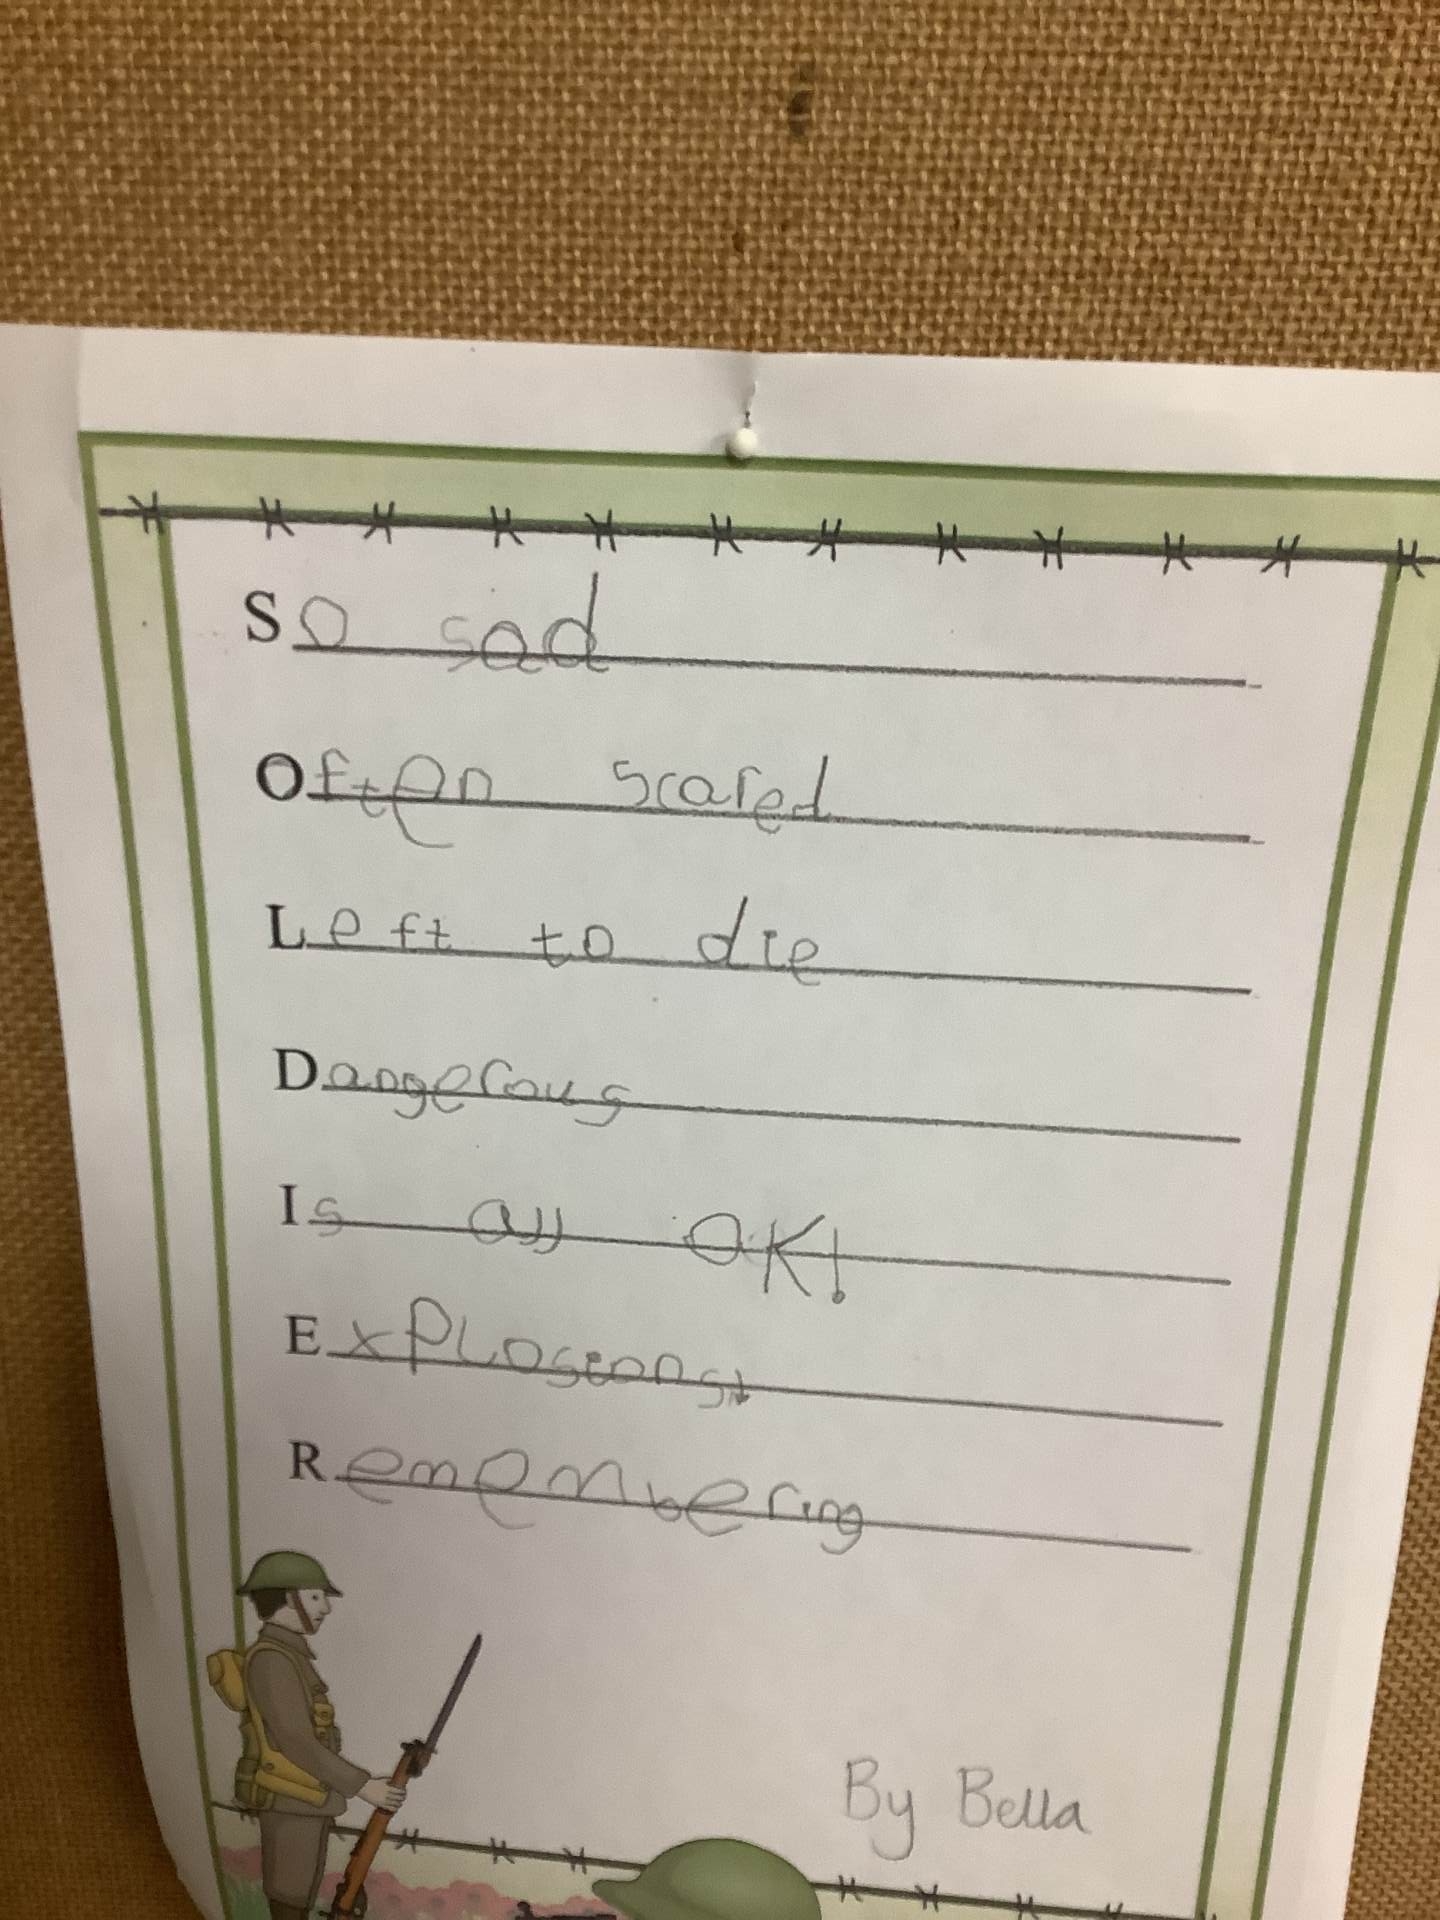 So sad
Often scared
Left to die
Dangerous
Is all OK!
Explosions!
Remembering
By Bella